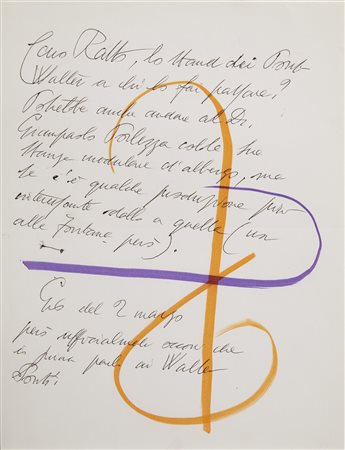 Caro Ratto, lo stand dei Ponti
Walter a chi lo fai passare?
Potrebbe anche andare al Dr.
Giampaolo con la sua
stanza modulare d'albergo, ma
se c'è qualche produzione più
interessante dalla a quella (
alle Fontana però).
del 2 marzo
però ufficialmente occorre che
io prima parli ai Walter
Ponti!